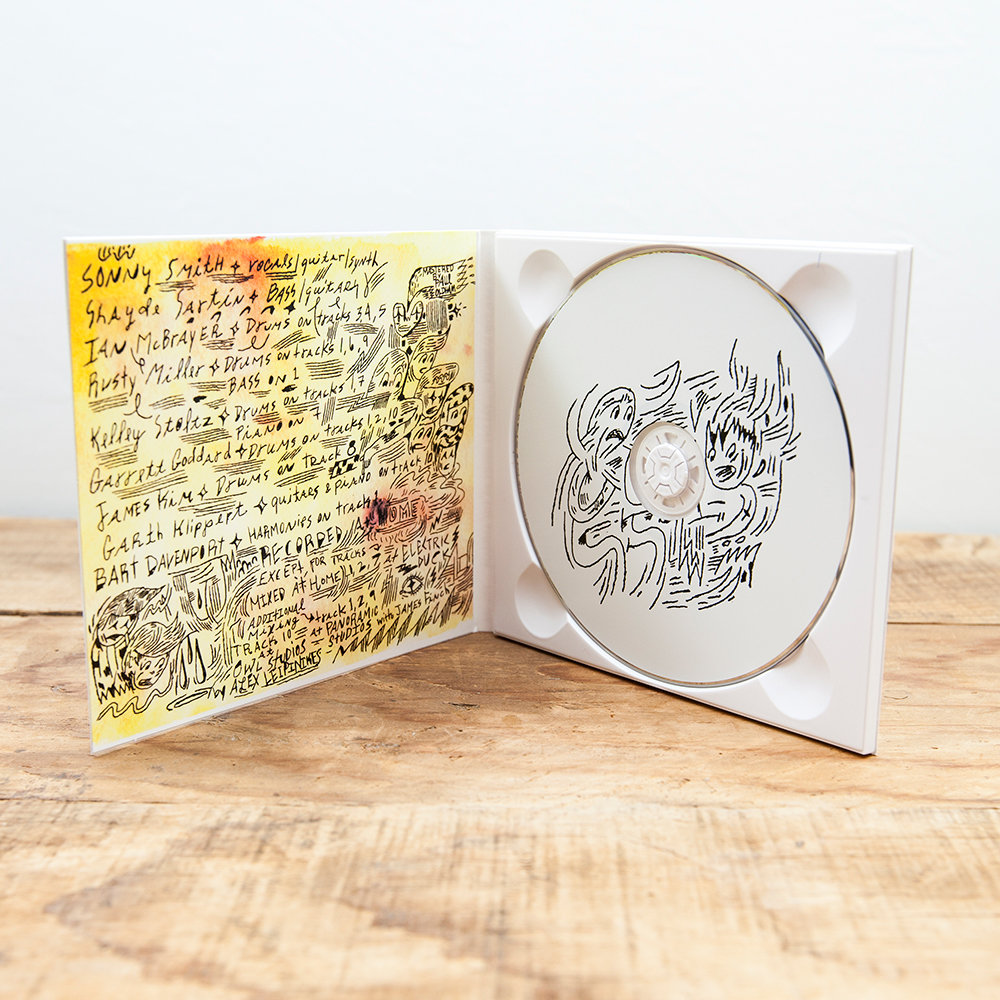 SONNY SMITH + vocals/guitar/synth
Shayde Sartin + BASS/guitar
IAN McBRAYER + DRUMS on tracks 3, 4, 5
Rusty Miller + DRUMS on tracks 1, 6, 9
BASS ON 1
Kelley Stoltz + Drums on tracks 1, 7
Piano on 7
Garrett Goddard + Drums on tracks 1, 2, 10
JAMES KIM + DRUMS on TRACK 8
GARTH Klippert + guitars & piano on track
BART DAVENPORT + HARMONIES on track
MASTERED
BY
PAUL
OLDHAM
RECORDED AT HOME
EXCEPT FOR TRACKS 7 at ELECTRIC
DUCK
(MIXED AT HOME) 1, 2, 7
ADDITIONAL
MIXING track 1, 2, 9
TRACK 10 = at PANORAMIC with JAMES FINCH
AT STUDIOS
OWL STUDIOS
by ALEX